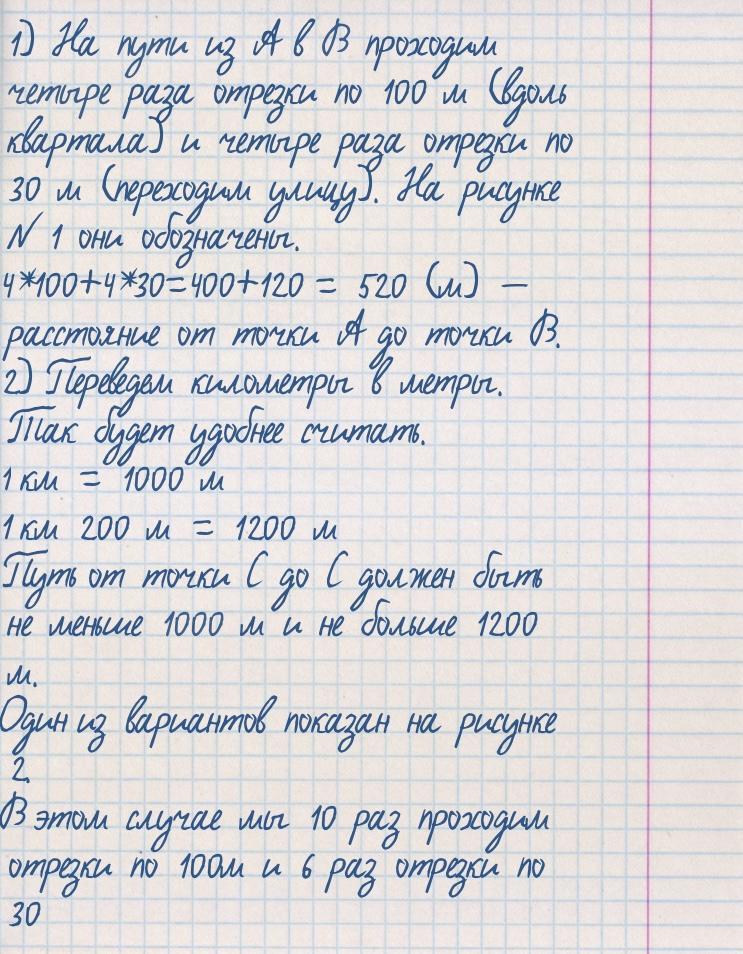 1) На пути из А в В проходим
четыре раза отрезки по 100 м (вдоль
квартала) и четыре раза отрезки по
30 м (переходим улицу). На рисунке
N 1 они обозначены.
4*100+4*30=400+120 = 520 (м) –
расстояние от точки А до точки В.
2) Переведем километры в метры.
Так будет удобнее считать.
1 км = 1000 м
1 км 200 м = 1200 м
Путь от точки С до С должен быть
не меньше 1000 м и не больше 1200
м.
Один из вариантов показан на рисунке
2.
В этом случае мы 10 раз проходим
отрезки по 100м и 6 раз отрезки по
30